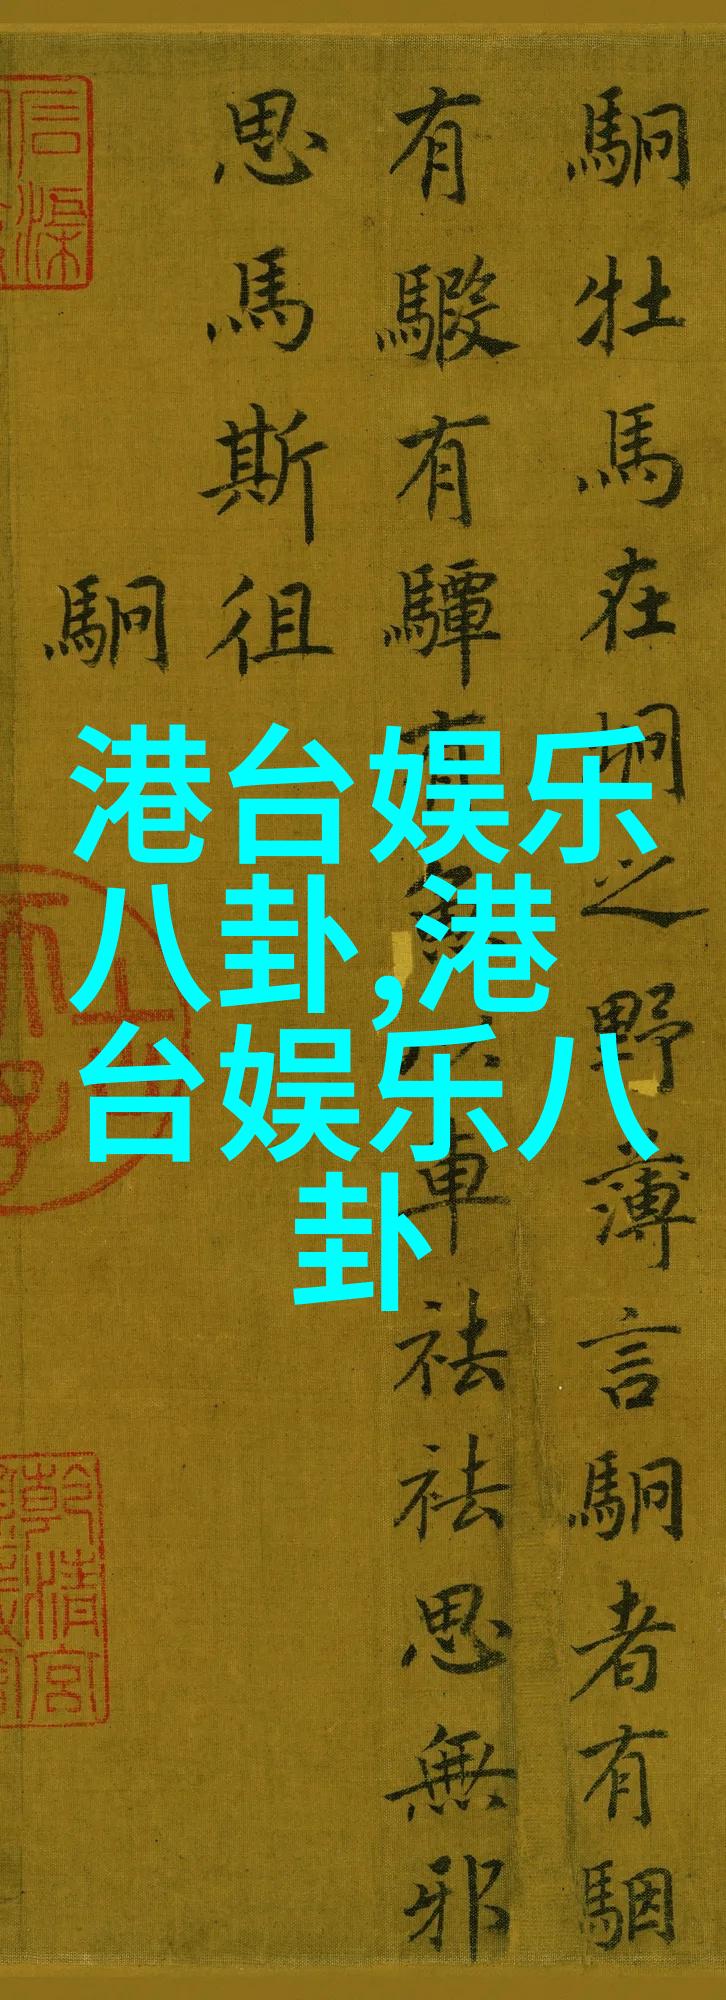 駉牡馬在坰之野薄言駉者有駰
有騢有驔有魚以車祛祛思無邪
思馬斯徂
駉
港台娱乐
八卦,港
台娱乐八
卦
乾清宮